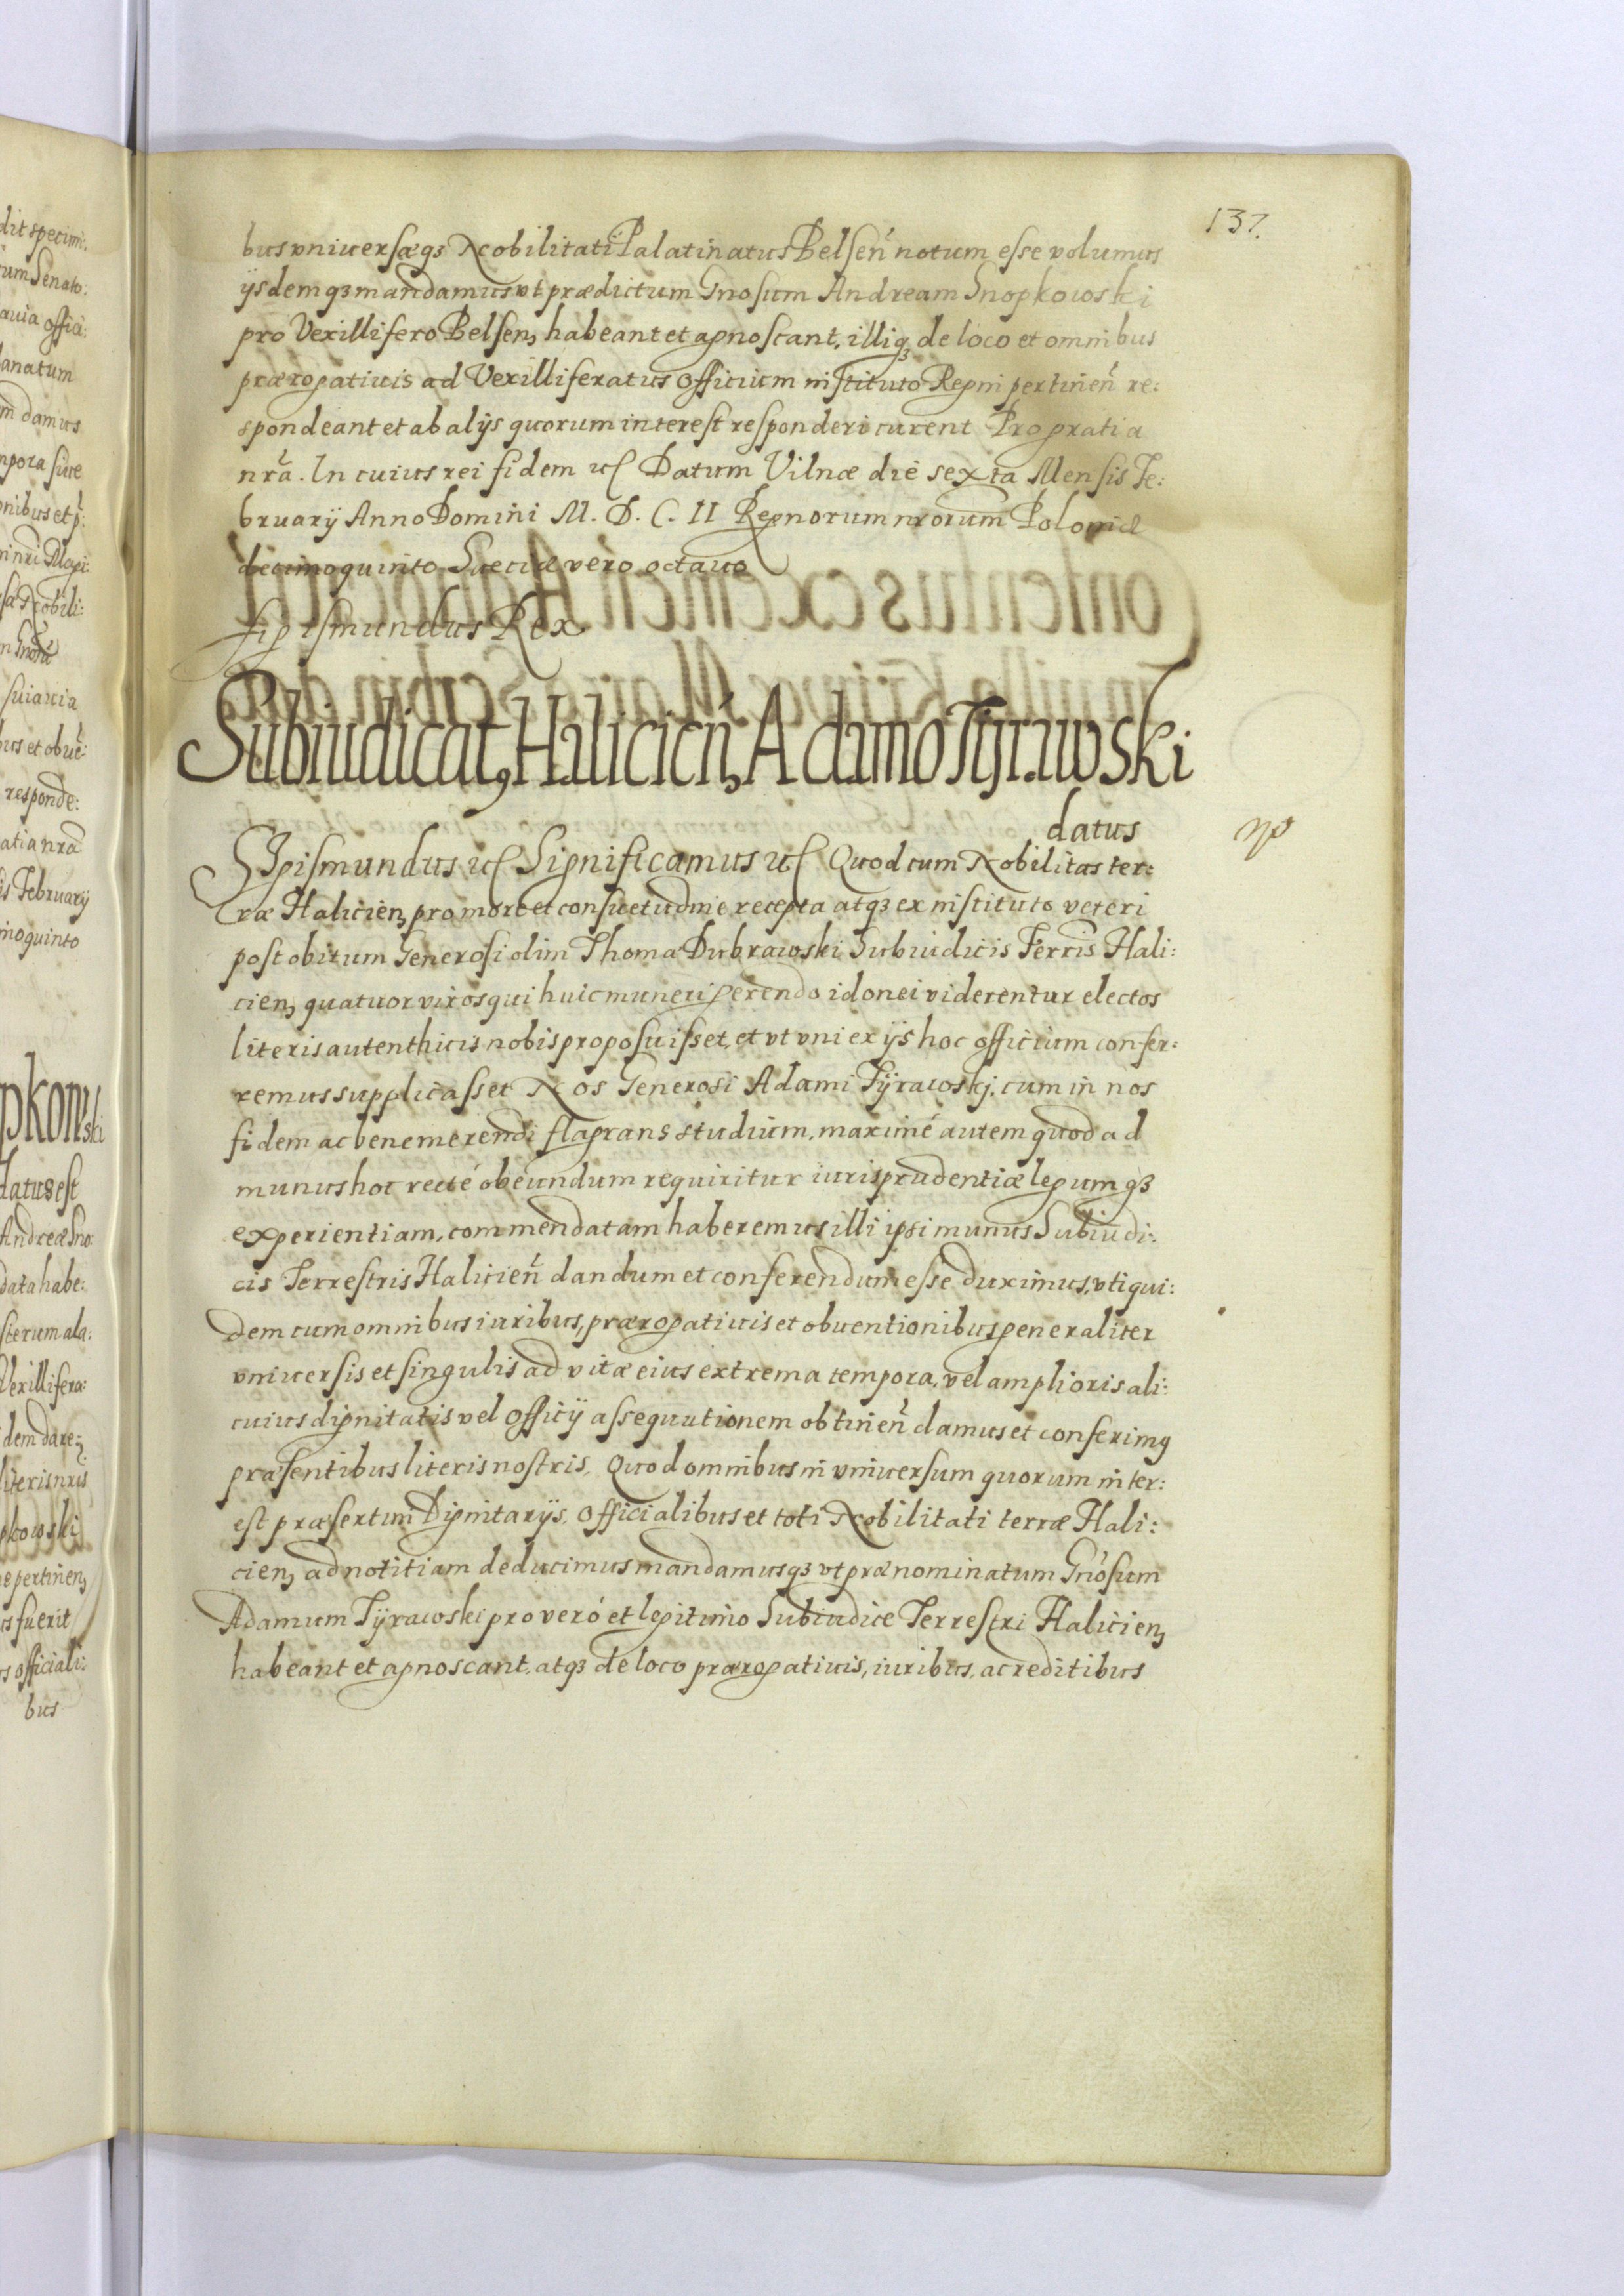 137.
bus vniuersæq3 Nobilitati Palatinatus Belseñ notum esse volumus
ijsdemq3 mandamus vt prædictum Gnosum Andream Snopkowski
pro Vexillifero Belsen, habeant et agnoscant, illiq3 de loco et omnibus
prærogatiuis ad Vexilliferatus Officium instituto Regni pertineñ re:
spondeant et ab alijs quorum interest responderi curent Pro gratia
nrã. In cuius rei fidem etc Datum Vilnæ die sexta Mensis Fe:
bruarij Anno Domini M. D. C. II Regnorum nrorum Poloniæ
decimoquinto Sueciæ vero octauo
Sigismundus Rex
Subiudicatus Halicień, Adamo Tyrawski
datus
Sigismundus etc Significamus etc Quod cum Nobilitas ter:
ræ Halicien, pro more et consuetudine recepta atq3 ex instituto veteri
post obitum Generosi olim Thomæ Dubrawski Subiudicis Terris Hali:
cien, quatuor viros qui huic muneri gerendo idonei viderentur electos
literis autenthicis nobis proposuisset, et vt vni ex ijs hoc officium confer:
remus supplicasset Nos Generosi Adami Tÿrawskj, cum in nos
fidem ac bene merendi flagrans studium, maximé autem quod ad
munus hoc recté obeundum requiritur iurisprudentiæ legumq3
experientiam, commendatam haberemus illi ipsi munus Subiudi:
cis Terrestris Halicień dandum et conferendum esse duximus, vti qui:
dem cum omnibus iuribus, prærogatiuis et obuentionibus generaliter
vniuersis et singulis ad vitæ eius extrema tempora, vel amplioris ali:
cuius dignitatis vel Officij assequutionem obtineñ damus et conferimus
præsentibus literis nostris. Quod omnibus in vniuersum quorum inter:
est præsertim Dignitarijs, Officialibus et toti Nobilitati terræ Hali:
cien, ad notitiam deducimus mandamusq3 vt prænominatum Gnosum
Adamum Tÿrawski pro veró et legitimo Subiudice Terrestri Halicien,
habeant et agnoscant, atq3 de loco prærogatiuis, iuribus, ac reditibus